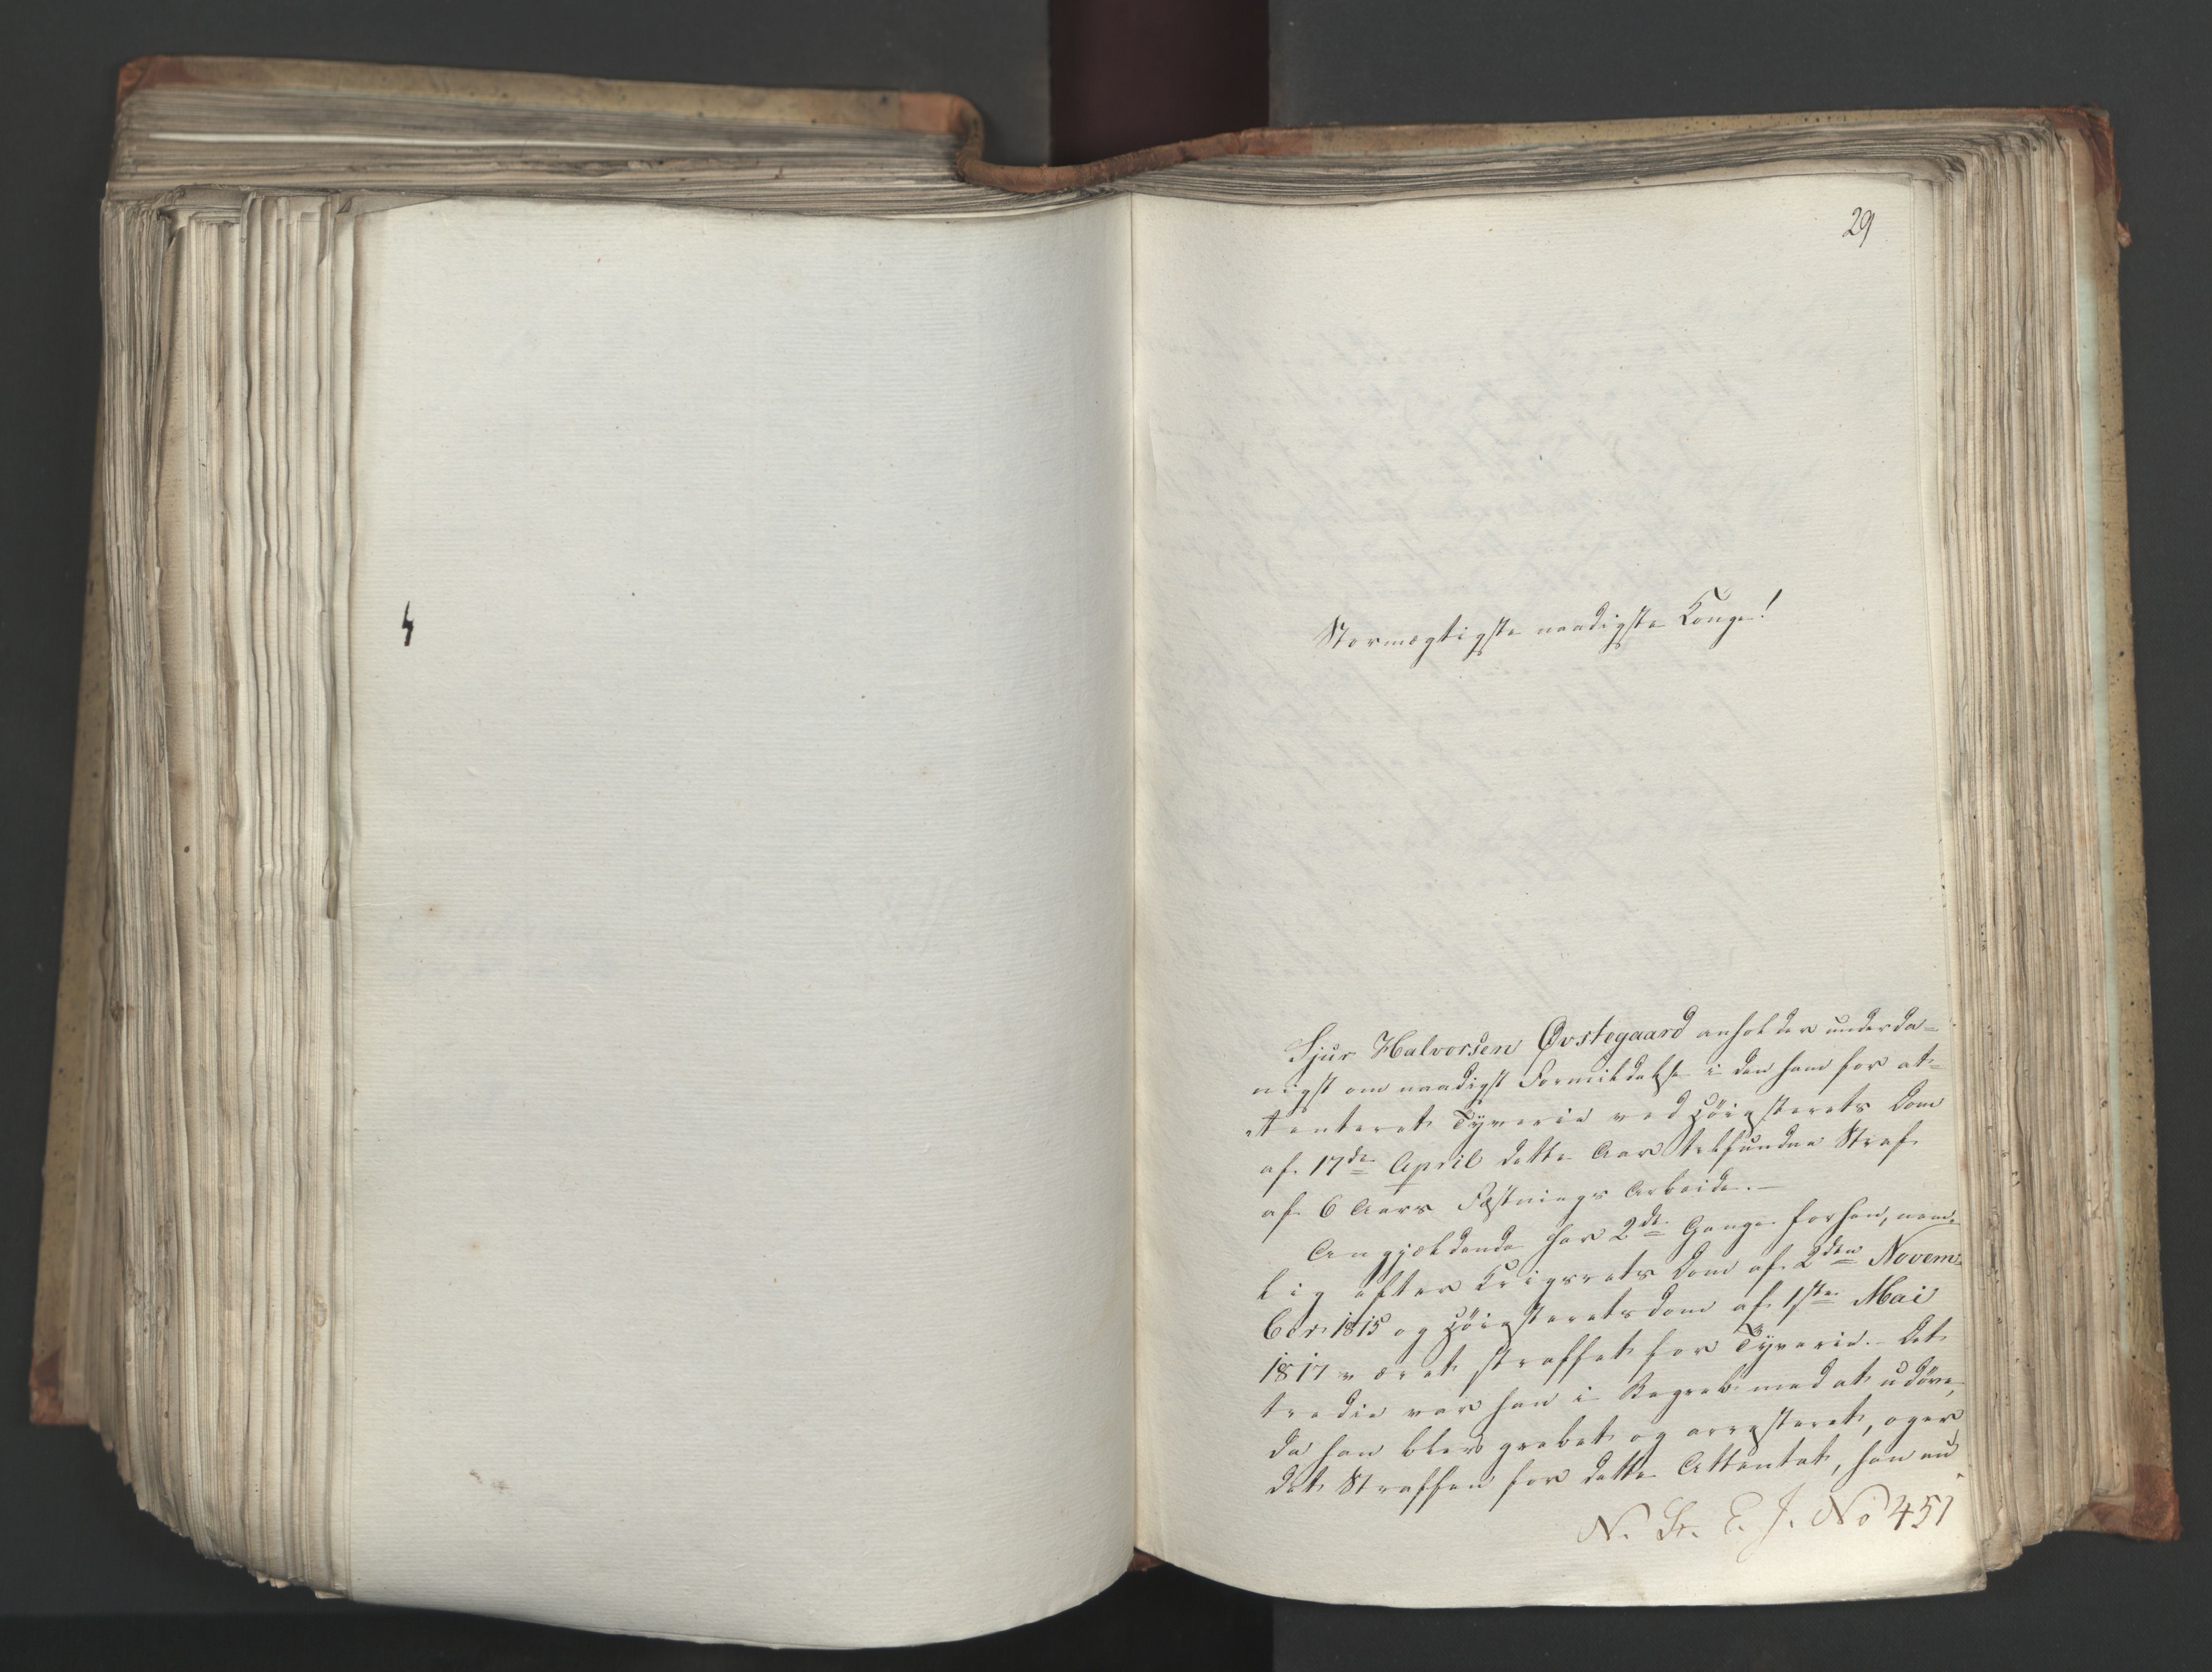 29
Stormægtigste naadigste Konge!
Sjur Halvorsen Øvstegaard anholder underda=
nigst om naadigst Formildelse i den ham for at=
tenteret Tyverie ved Høiesterets Dom
af 17de April dette Aar tilfundne Straf
af 6 Aars Fæstnings Arbeide.—
Angjældende har 2de Gange forhen, nem=
lig efter Krigsrets Dom af 2den Novem=
ber 1815 og Høiesteretsdom af 1ste Mai
1817 været straffet for Tyverie.— Det
tredie var han i Begreb med at udöve,
da han blev grebet og arresteret, og er
det Straffen for dette Attentat, han nu
N. St. E. J. No 451